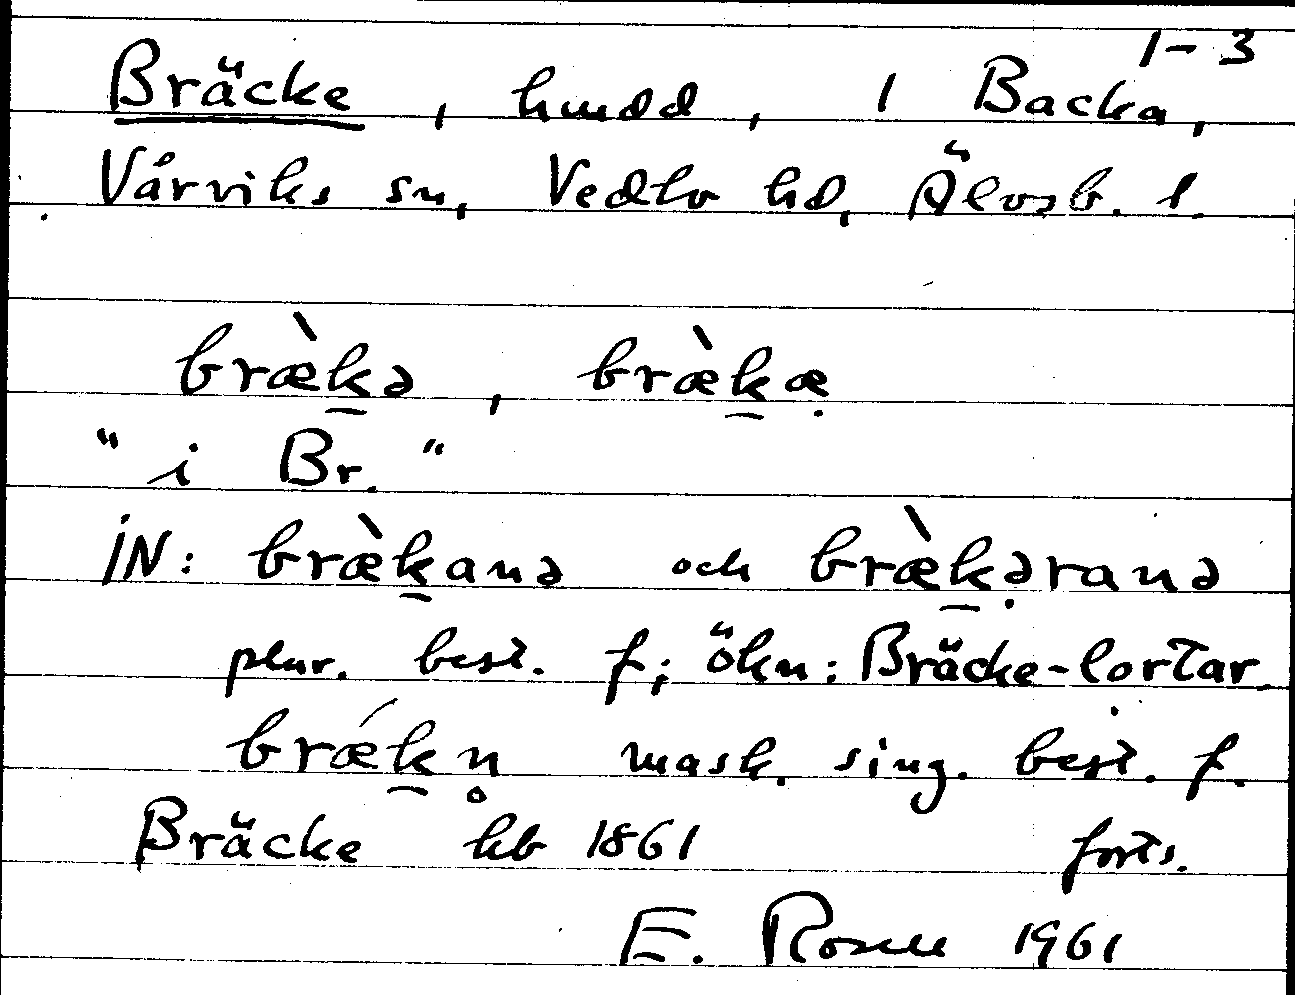 1-3
Bräcke, hmdd, 1 Backa,
Vårviks sn, Vedbo hd, Älvsb. l.
bræ̀k̲ə, bræ̀k̲æ̣
"i Br."
IN: bræ̀k̲anə och bræ̀k̲ə̣ranə
plur. best. f; ökn: Bräcke-lortar
brǽk̲n̥ mask. sing. best. f.
Bräcke hb 1861 forts.
E. Rosell 1961